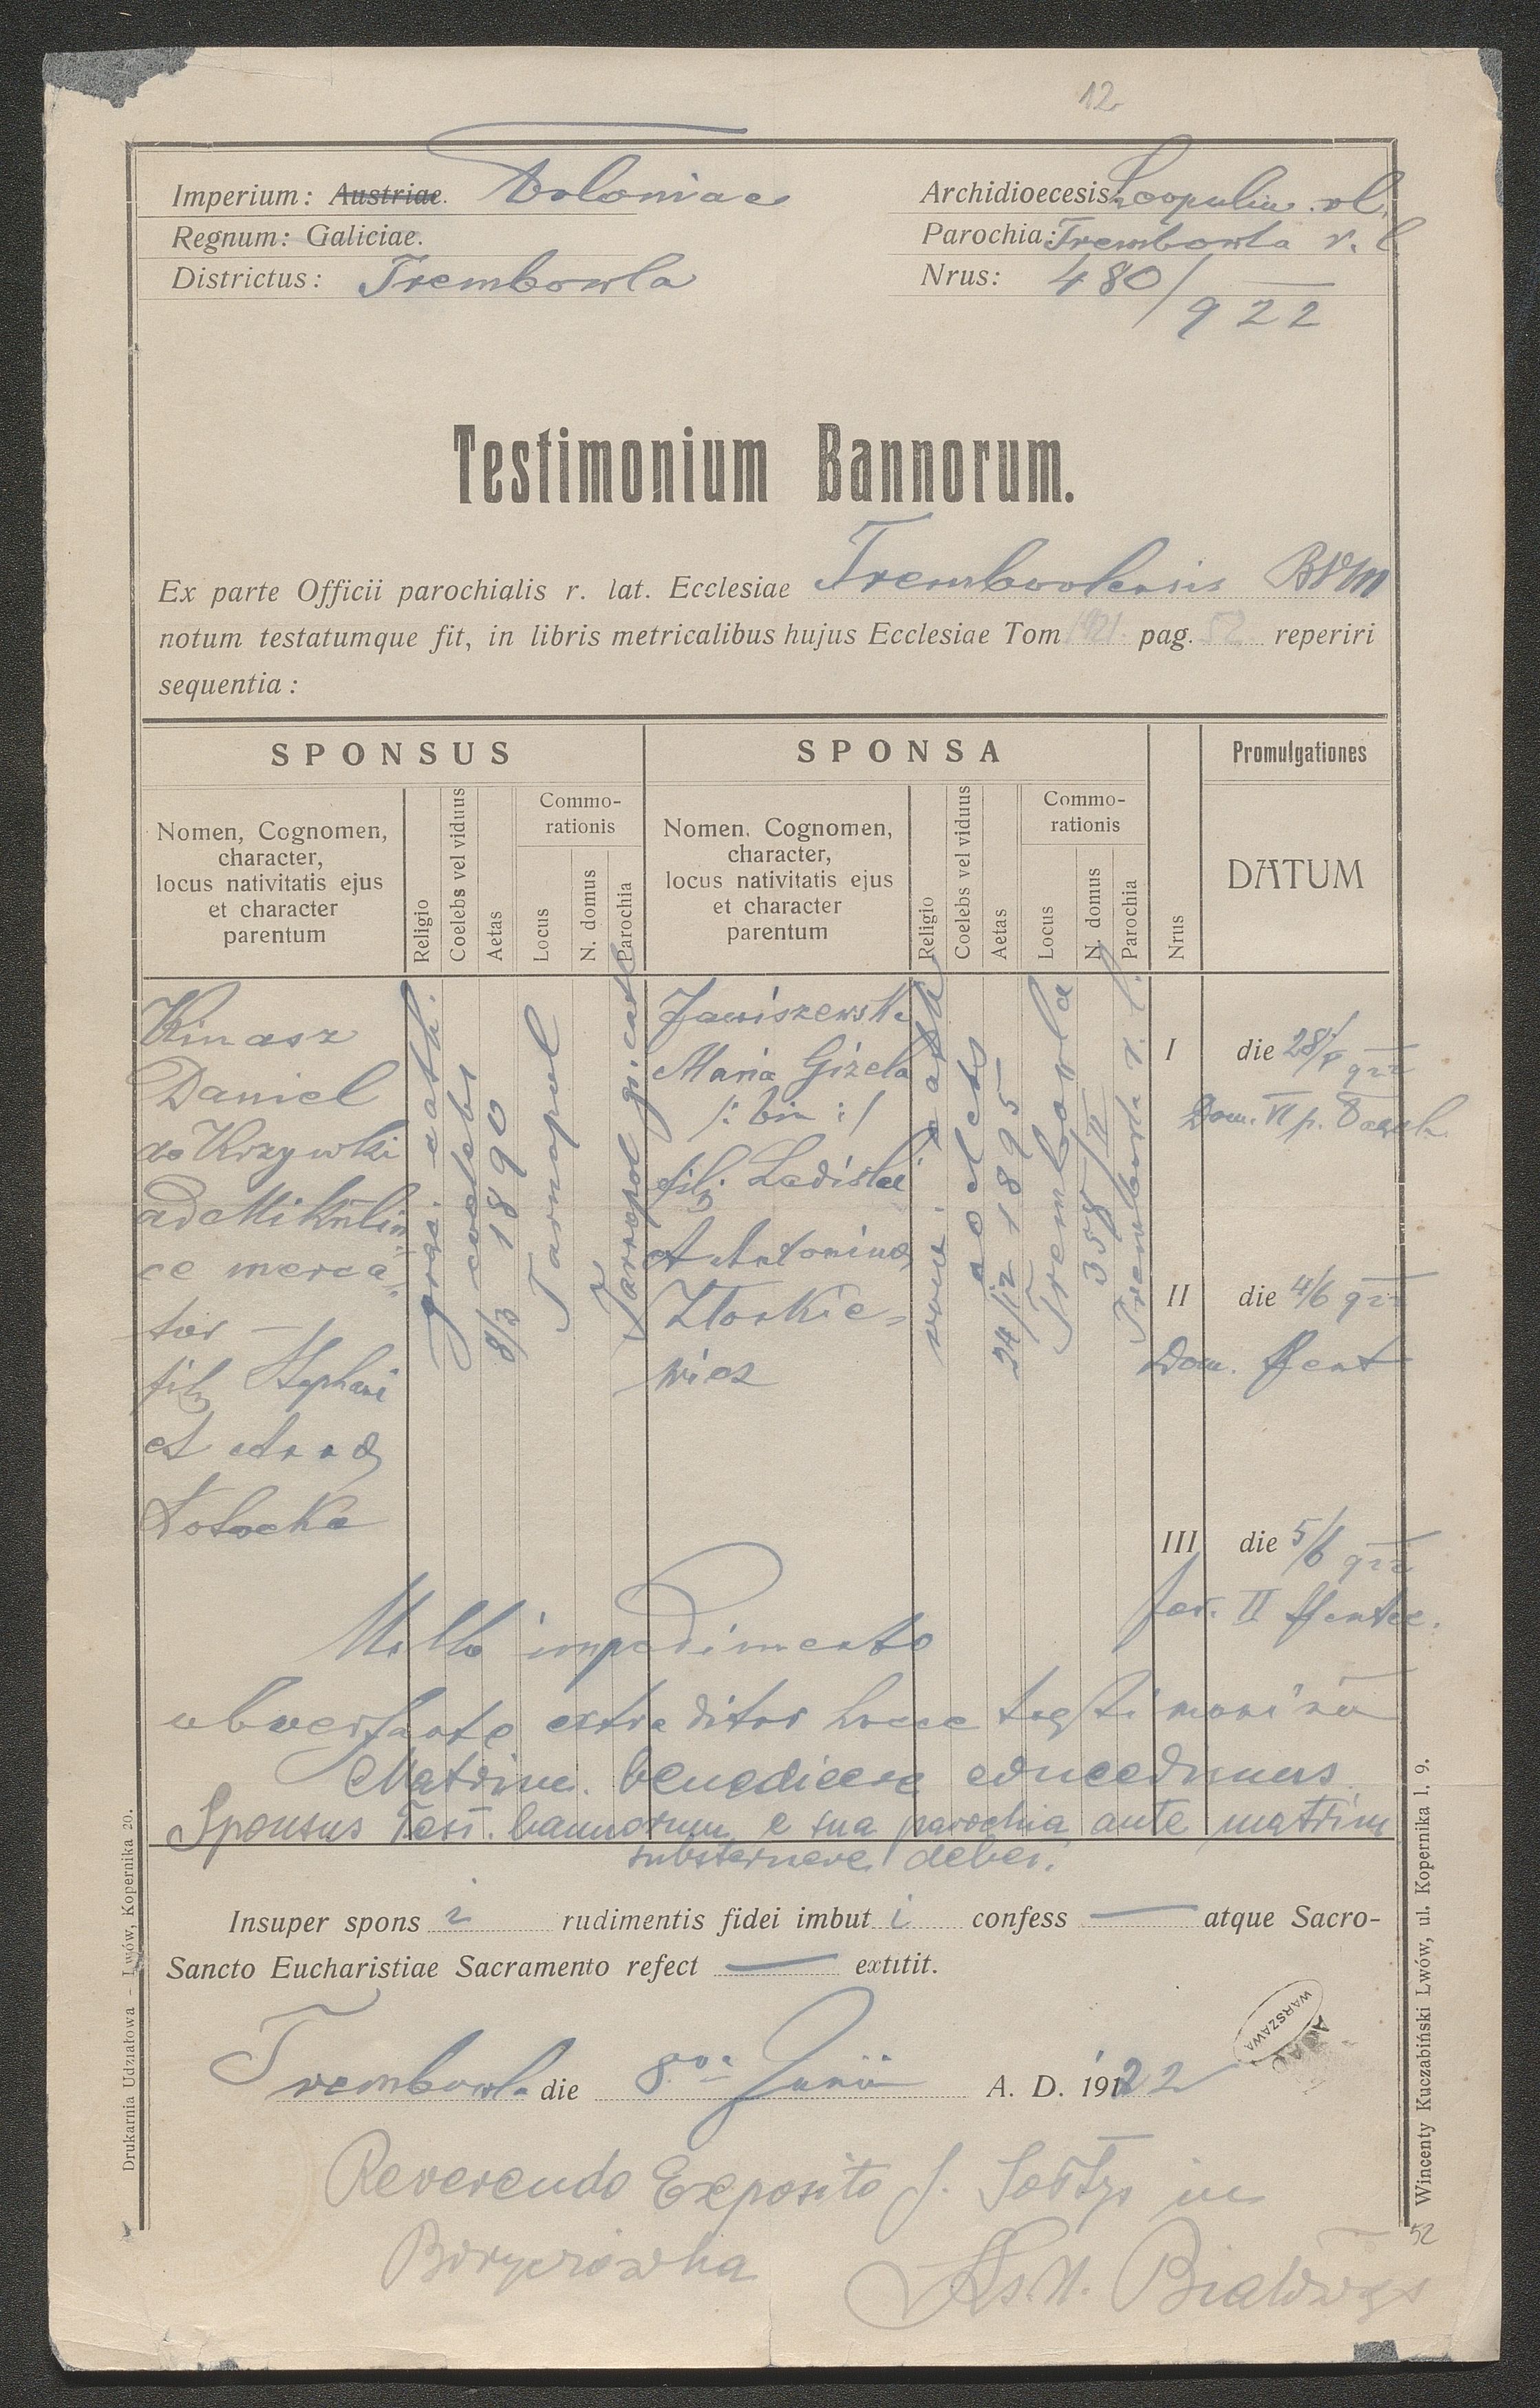 12
Imperium: Austriae. Poloniae
Regnum: Galiciae.
Districtus: Trembowla
Archidioecesis: Leopolien. r. l.
Parochia: Trembowla r. l.
Nrus: 480/922
Testimonium Bannorum.
Ex parte Officii parochialis r. lat. Ecclesiae Trembovlensis BVM
notum testatumque fit, in libris metricalibus hujus Ecclesiae Tom 1921 pag. 52 reperiri
sequentia:
SPONSUS
SPONSA
Promulgationes
Nomen, Cognomen,
character,
locus nativitatis ejus
et character
parentum
Religio
Coelebs vel viduus
Aetas
Commo-
rationis
Locus
N. domus
Parochia
Nomen, Cognomen,
character,
locus nativitatis ejus
et character
parentum
Religio
Coelebs vel viduus
Aetas
Commo-
rationis
Locus
N. domus
Parochia
Nrus
DATUM
Kinasz
Daniel
de Krzywki
ad Mikulin
ce merca
tor —
fil. Stephani
et Annae
Potocka
graec. cath.
coelebs
8/3 1890
Tarnopol
Tarnopol gr. cath
Jawiszewska
Maria Gizela
/: bin :/
fil. Ladislai
et Antoninae
Ztorkie-
wicz
rom. cath
coelebs
24/12 1895
Trembowla
358/II
Trembowla r. l.
I die 28/5 922
Dom. VI p. Pasch
II die 4/6 922
Dom. Pent
III die 5/6 922
fer. II Pentec.
Nullo impedimento
obversante extraditur hocce testimoniu
Matrim. benedicere concedimus
Sponsus Test. bannorum e sua parochia ante matrim
substernere debet.
Insuper spons i rudimentis fidei imbut i confess — atque Sacro-
Sancto Eucharistiae Sacramento refect — extitit.
Trembowla die 8va Junii A. D. 1922
AGAD
WARSZAWA
Reverendo Exposito J. Sołtys in
Boryczówka
Ks. N. Białowąs
52
Drukarnia Udziałowa – Lwów, Kopernika 20.
Wincenty Kuczabiński Lwów, ul. Kopernika l. 9.